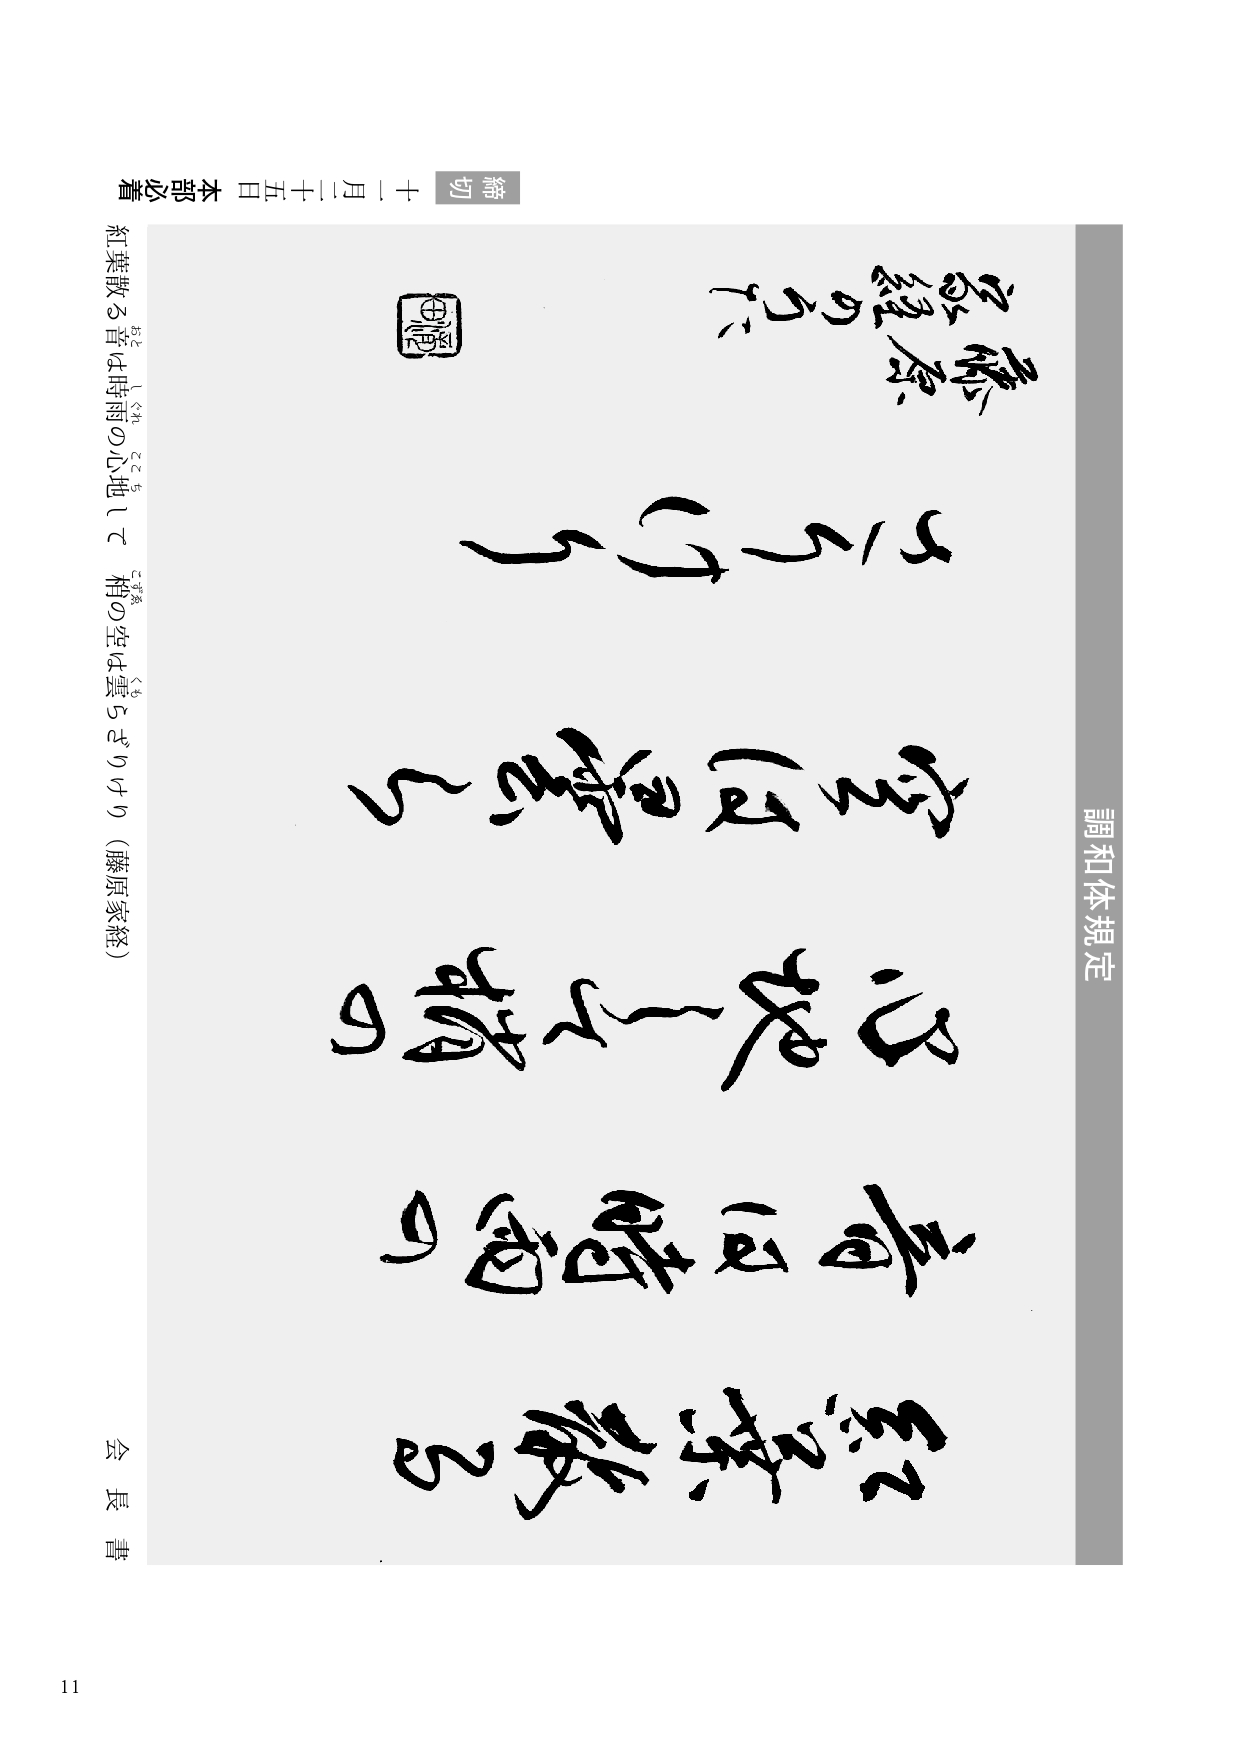 調和体規定
紅葉散る
音は時雨の
心地して梢の
空は曇ら
さりけり
藤原
家経のうた
締切 十一月二十五日 本部必着
紅葉散る音は時雨の心地して 梢の空は雲らざりけり（藤原家経）
おと しぐれ ここち こずゑ くも
会長書
11